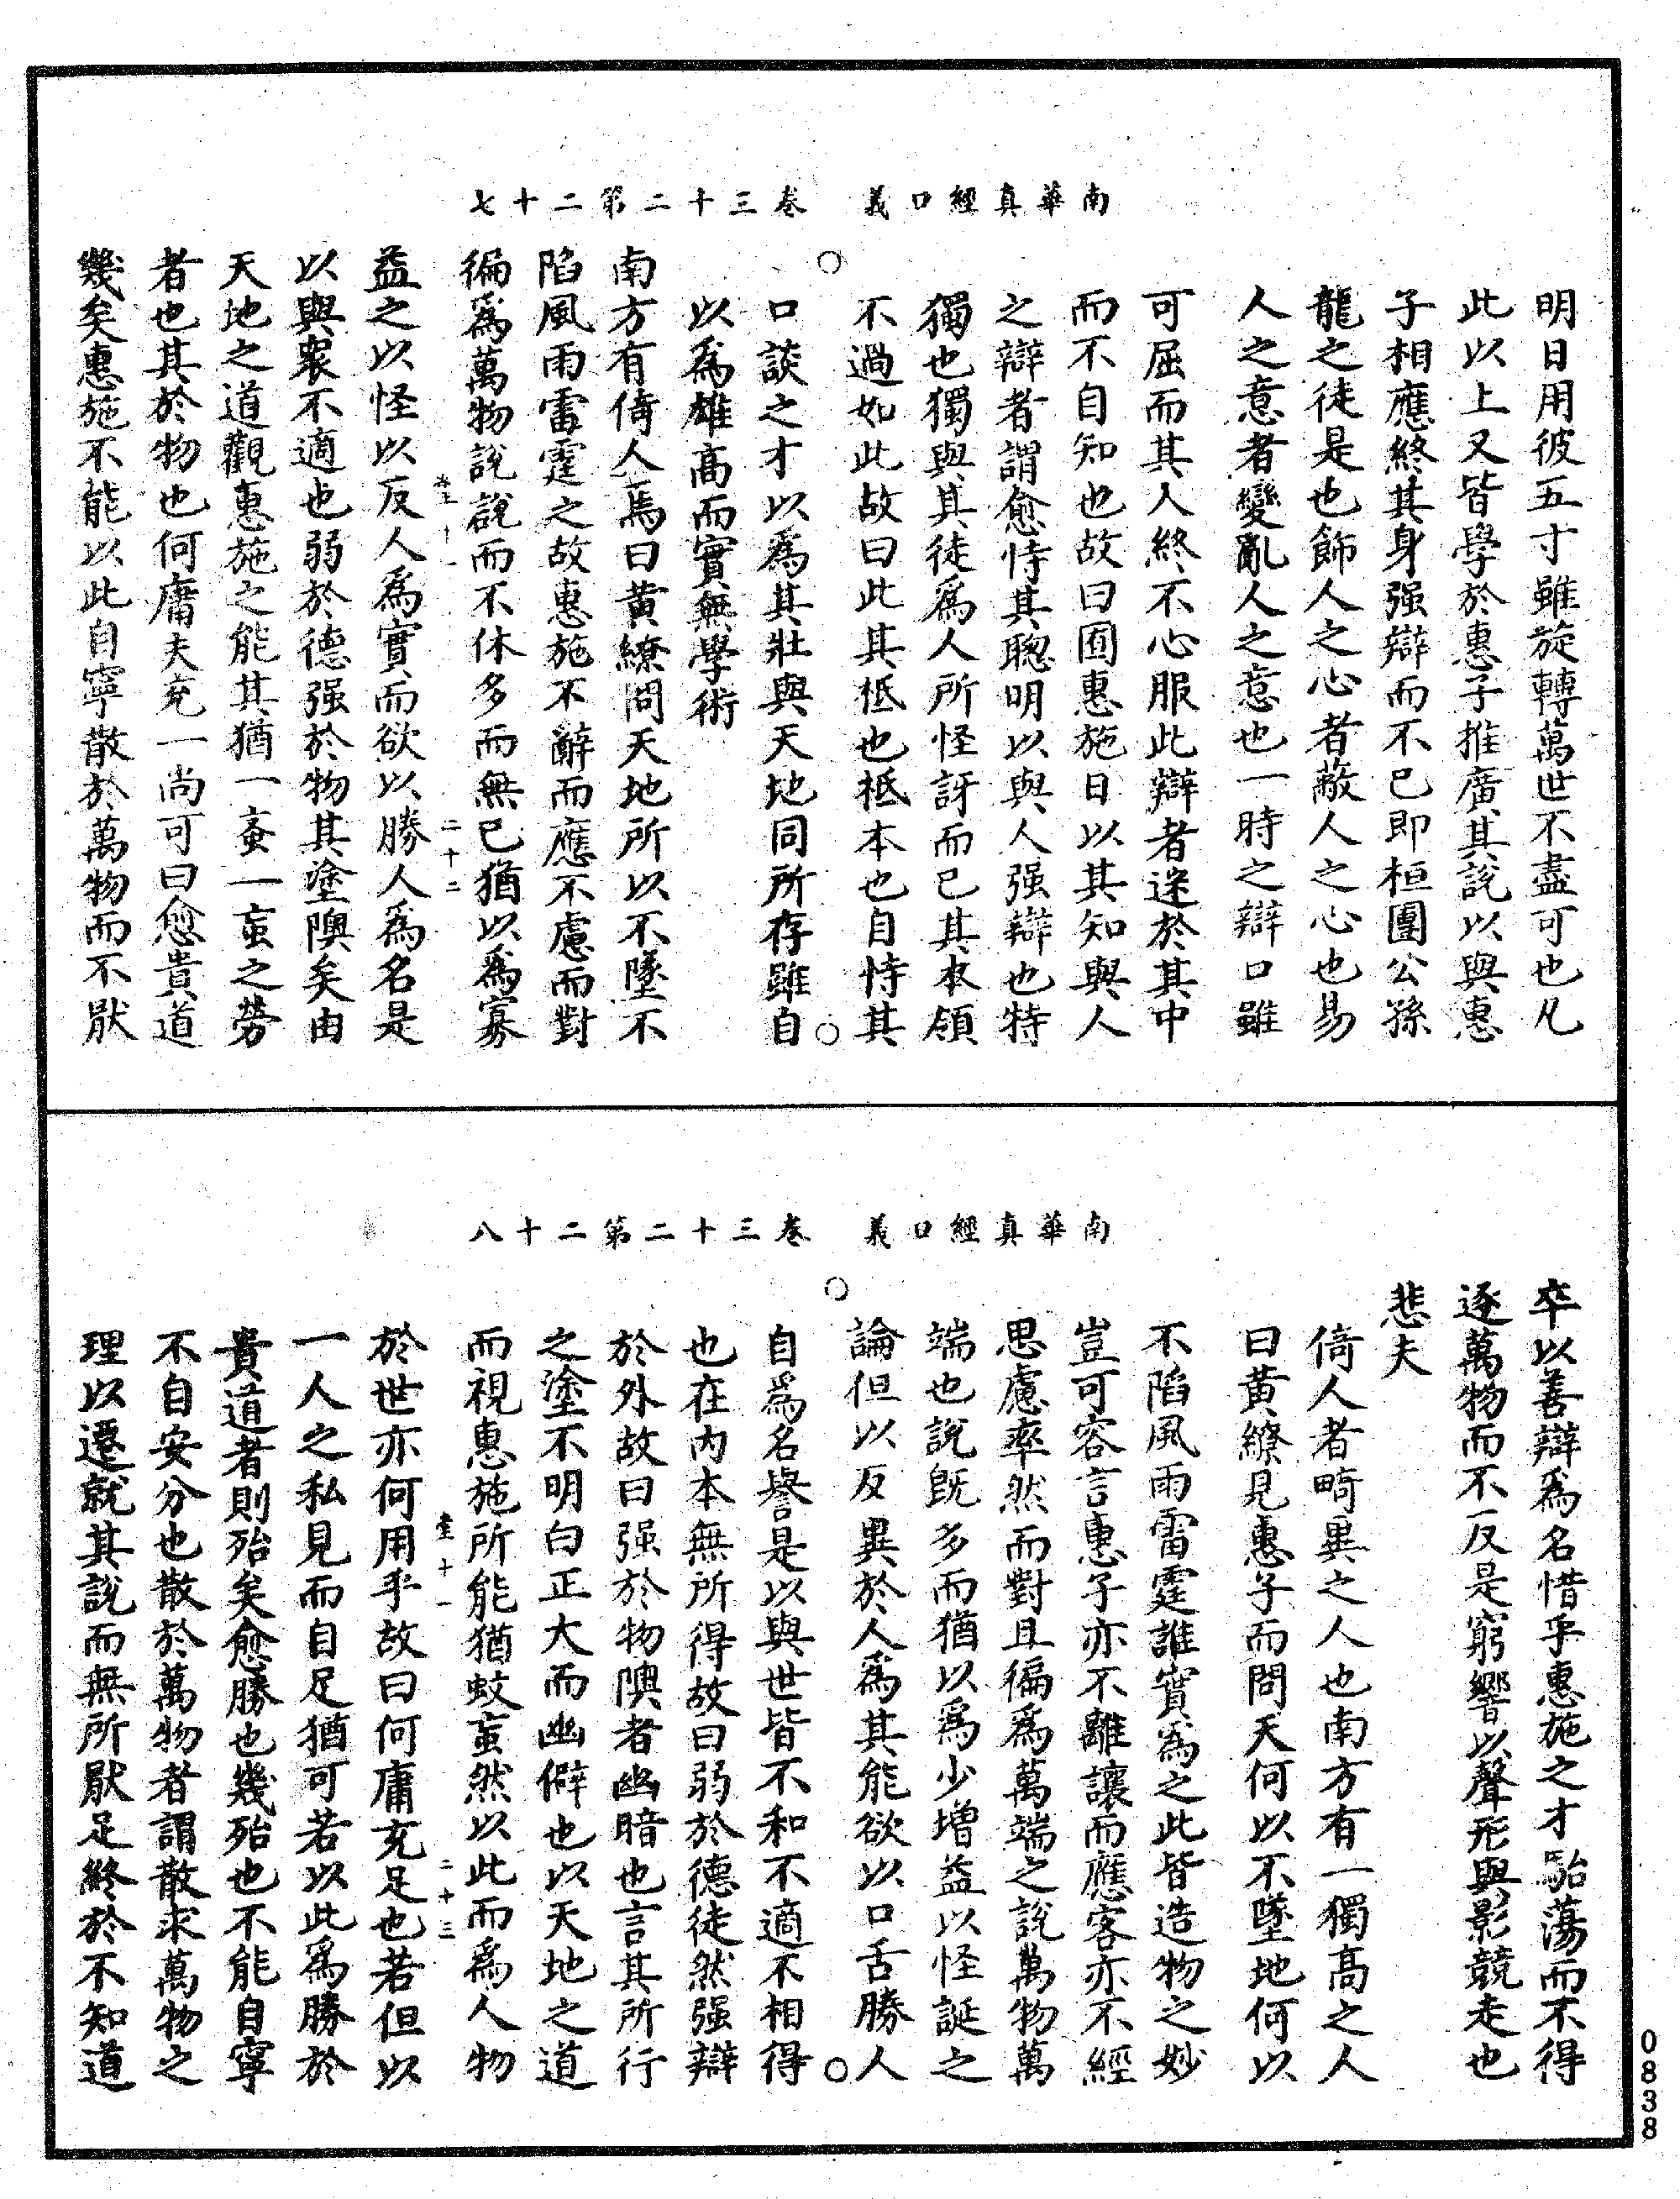 南華真經口義　卷三十二第二十七
明日用彼五寸雖旋轉萬世不盡可也凡
此以上又皆學於惠子推廣其說以與惠
子相應終其身强辯而不已即桓團公孫
龍之徒是也飾人之心者蔽人之心也易
人之意者變亂人之意也一時之辯口雖
可屈而其人終不心服此辯者迷於其中
而不自知也故曰囿惠施日以其知與人
之辯者謂愈恃其聰明以與人强辯也特
獨也獨與其徒爲人所怪訝而已其本領
不過如此故曰此其柢也柢本也自恃其
口談之才以爲其壯與天地同所存雖自
以爲雄高而實無學術
南方有倚人焉曰黄繚問天地所以不墜不
陷風雨雷霆之故惠施不辭而應不慮而對
徧爲萬物說說而不休多而無已猶以爲寡
益之以怪以反人爲實而欲以勝人爲名是
以與衆不適也弱於德强於物其塗隩矣由
天地之道觀惠施之能其猶一蚉一䖟之勞
者也其於物也何庸夫充一尚可曰愈貴道
幾矣惠施不能以此自寧散於萬物而不厭
二十二
南華真經口義　卷三十二第二十八
卒以善辯爲名惜乎惠施之才駘蕩而不得
逐萬物而不反是窮響以聲形與影競走也
悲夫
倚人者畸異之人也南方有一獨高之人
曰黄繚見惠子而問天何以不墜地何以
不陷風雨雷霆誰實爲之此皆造物之妙
豈可容言惠子亦不辭讓而應客亦不經
思慮率然而對且徧爲萬端之說萬物萬
端也說既多而猶以爲少增益以怪誕之
論但以反異於人爲其能欲以口舌勝人
自爲名譽是以與世皆不和不適不相得
也在內本無所得故曰弱於德徒然强辯
於外故曰强於物隩者幽暗也言其所行
之塗不明白正大而幽僻也以天地之道
而視惠施所能猶蚊䖟然以此而爲人物
於世亦何用乎故曰何庸充足也若但以
一人之私見而自足猶可若以此爲勝於
貴道者則殆矣愈勝也幾殆也不能自寧
不自安分也散於萬物者謂散求萬物之
理以遷就其說而無所厭足終於不知道
二十三
0838